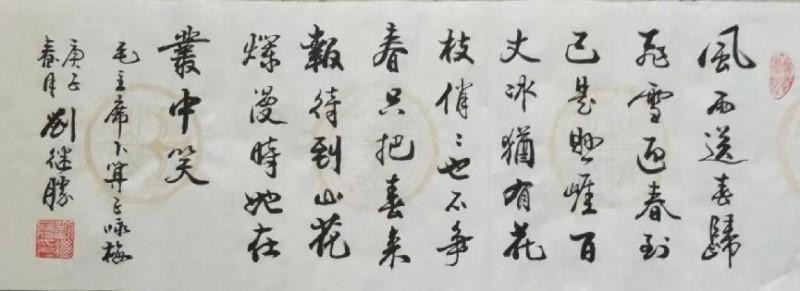 風雨送春歸
飛雪迎春到
已是懸崖百
丈冰猶有花
枝俏俏也不爭
春只把春來
報待到山花
爛漫時她在
叢中笑
毛主席卜算子咏梅
庚子
春月劉继勝